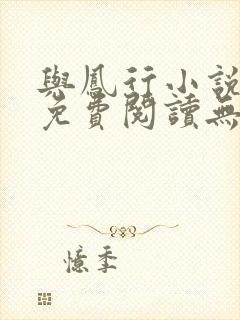 與鳳行小說
免費閱讀無
憶季